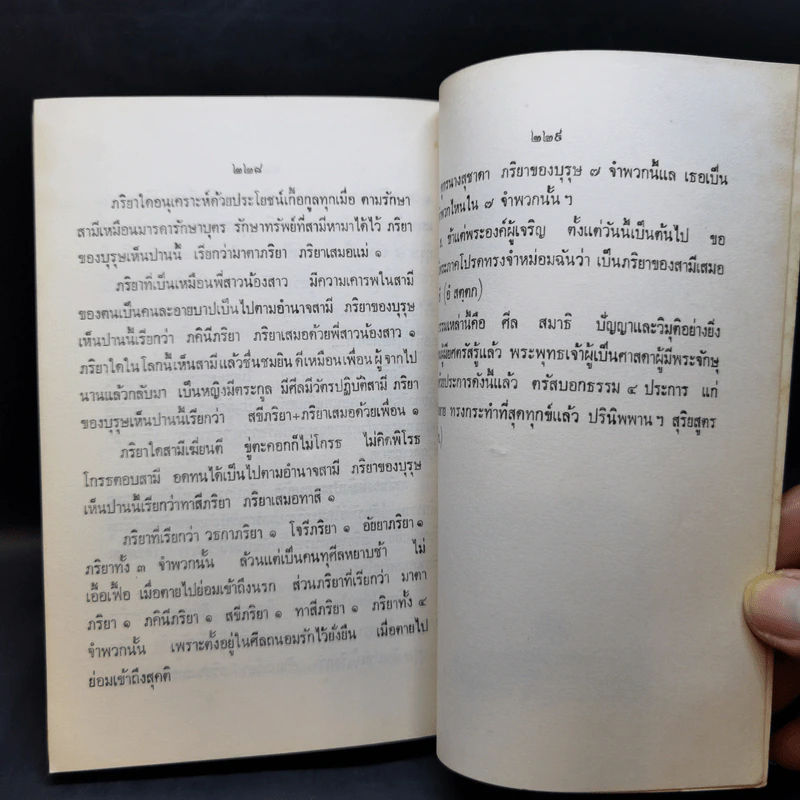 ๒๒๘
ภริยาใดอนุเคราะห์ด้วยประโยชน์เกื้อกูลทุกเมื่อ ตามรักษา
สามีเหมือนมารดารักษาบุตร รักษาทรัพย์ที่สามีหามาได้ไว้ ภริยา
ของบุรุษเห็นปานนี้ เรียกว่ามาตาภริยา ภริยาเสมอแม่ ๑
ภริยาที่เป็นเหมือนพี่สาวน้องสาว มีความเคารพในสามี
ของตนเป็นคนละอายบาปเป็นไปตามอำนาจสามี ภริยาของบุรุษ
เห็นปานนี้เรียกว่า ภคินีภริยา ภริยาเสมอด้วยพี่สาวน้องสาว ๑
ภริยาใดในโลกนี้เห็นสามีแล้วชื่นชมยินดีเหมือนเพื่อนผู้จากไป
นานแล้วกลับมา เป็นหญิงมีตระกูล มีศีลมีวัตรปฏิบัติสามี ภริยา
ของบุรุษเห็นปานนี้เรียกว่า สขีภริยา+ภริยาเสมอด้วยเพื่อน ๑
ภริยาใดสามีเฆี่ยนตี ขู่ตะคอกก็ไม่โกรธ ไม่คิดพิโรธ
โกรธตอบสามี อดทนได้เป็นไปตามอำนาจสามี ภริยาของบุรุษ
เห็นปานนี้เรียกว่าทาสีภริยา ภริยาเสมอทาสี ๑
ภริยาที่เรียกว่า วธกาภริยา ๑ โจรีภริยา ๑ อัยยาภริยา ๑
ภริยาทั้ง ๓ จำพวกนั้น ล้วนแต่เป็นคนทุศีลหยาบช้า ไม่
เอื้อเฟื้อ เมื่อตายไปย่อมเข้าถึงนรก ส่วนภริยาที่เรียกว่า มาตา
ภริยา ๑ ภคินีภริยา ๑ สขีภริยา ๑ ทาสีภริยา ๑ ภริยาทั้ง ๔
จำพวกนั้น เพราะตั้งอยู่ในศีลถนอมรักไว้ยั่งยืน เมื่อตายไป
ย่อมเข้าถึงสุคติ
๒๒๙
นางสุชาดา ภริยาของบุรุษ ๗ จำพวกนี้แล เธอเป็น
จำพวกไหนใน ๗ จำพวกนั้น ฯ
ข้าแต่พระองค์ผู้เจริญ ตั้งแต่วันนี้เป็นต้นไป ขอ
โปรดทรงจำหม่อมฉันว่า เป็นภริยาของสามีเสมอ
(อํ สตฺตก)
ธรรมเหล่านี้คือ ศีล สมาธิ ปัญญาและวิมุติอย่างยิ่ง
ตรัสรู้แล้ว พระพุทธเจ้าผู้เป็นศาสดาผู้มีพระจักษุ
ด้วยประการดังนี้แล้ว ตรัสบอกธรรม ๔ ประการ แก่
ทรงกระทำที่สุดทุกข์แล้ว ปรินิพพาน ฯ สุริยสูตร